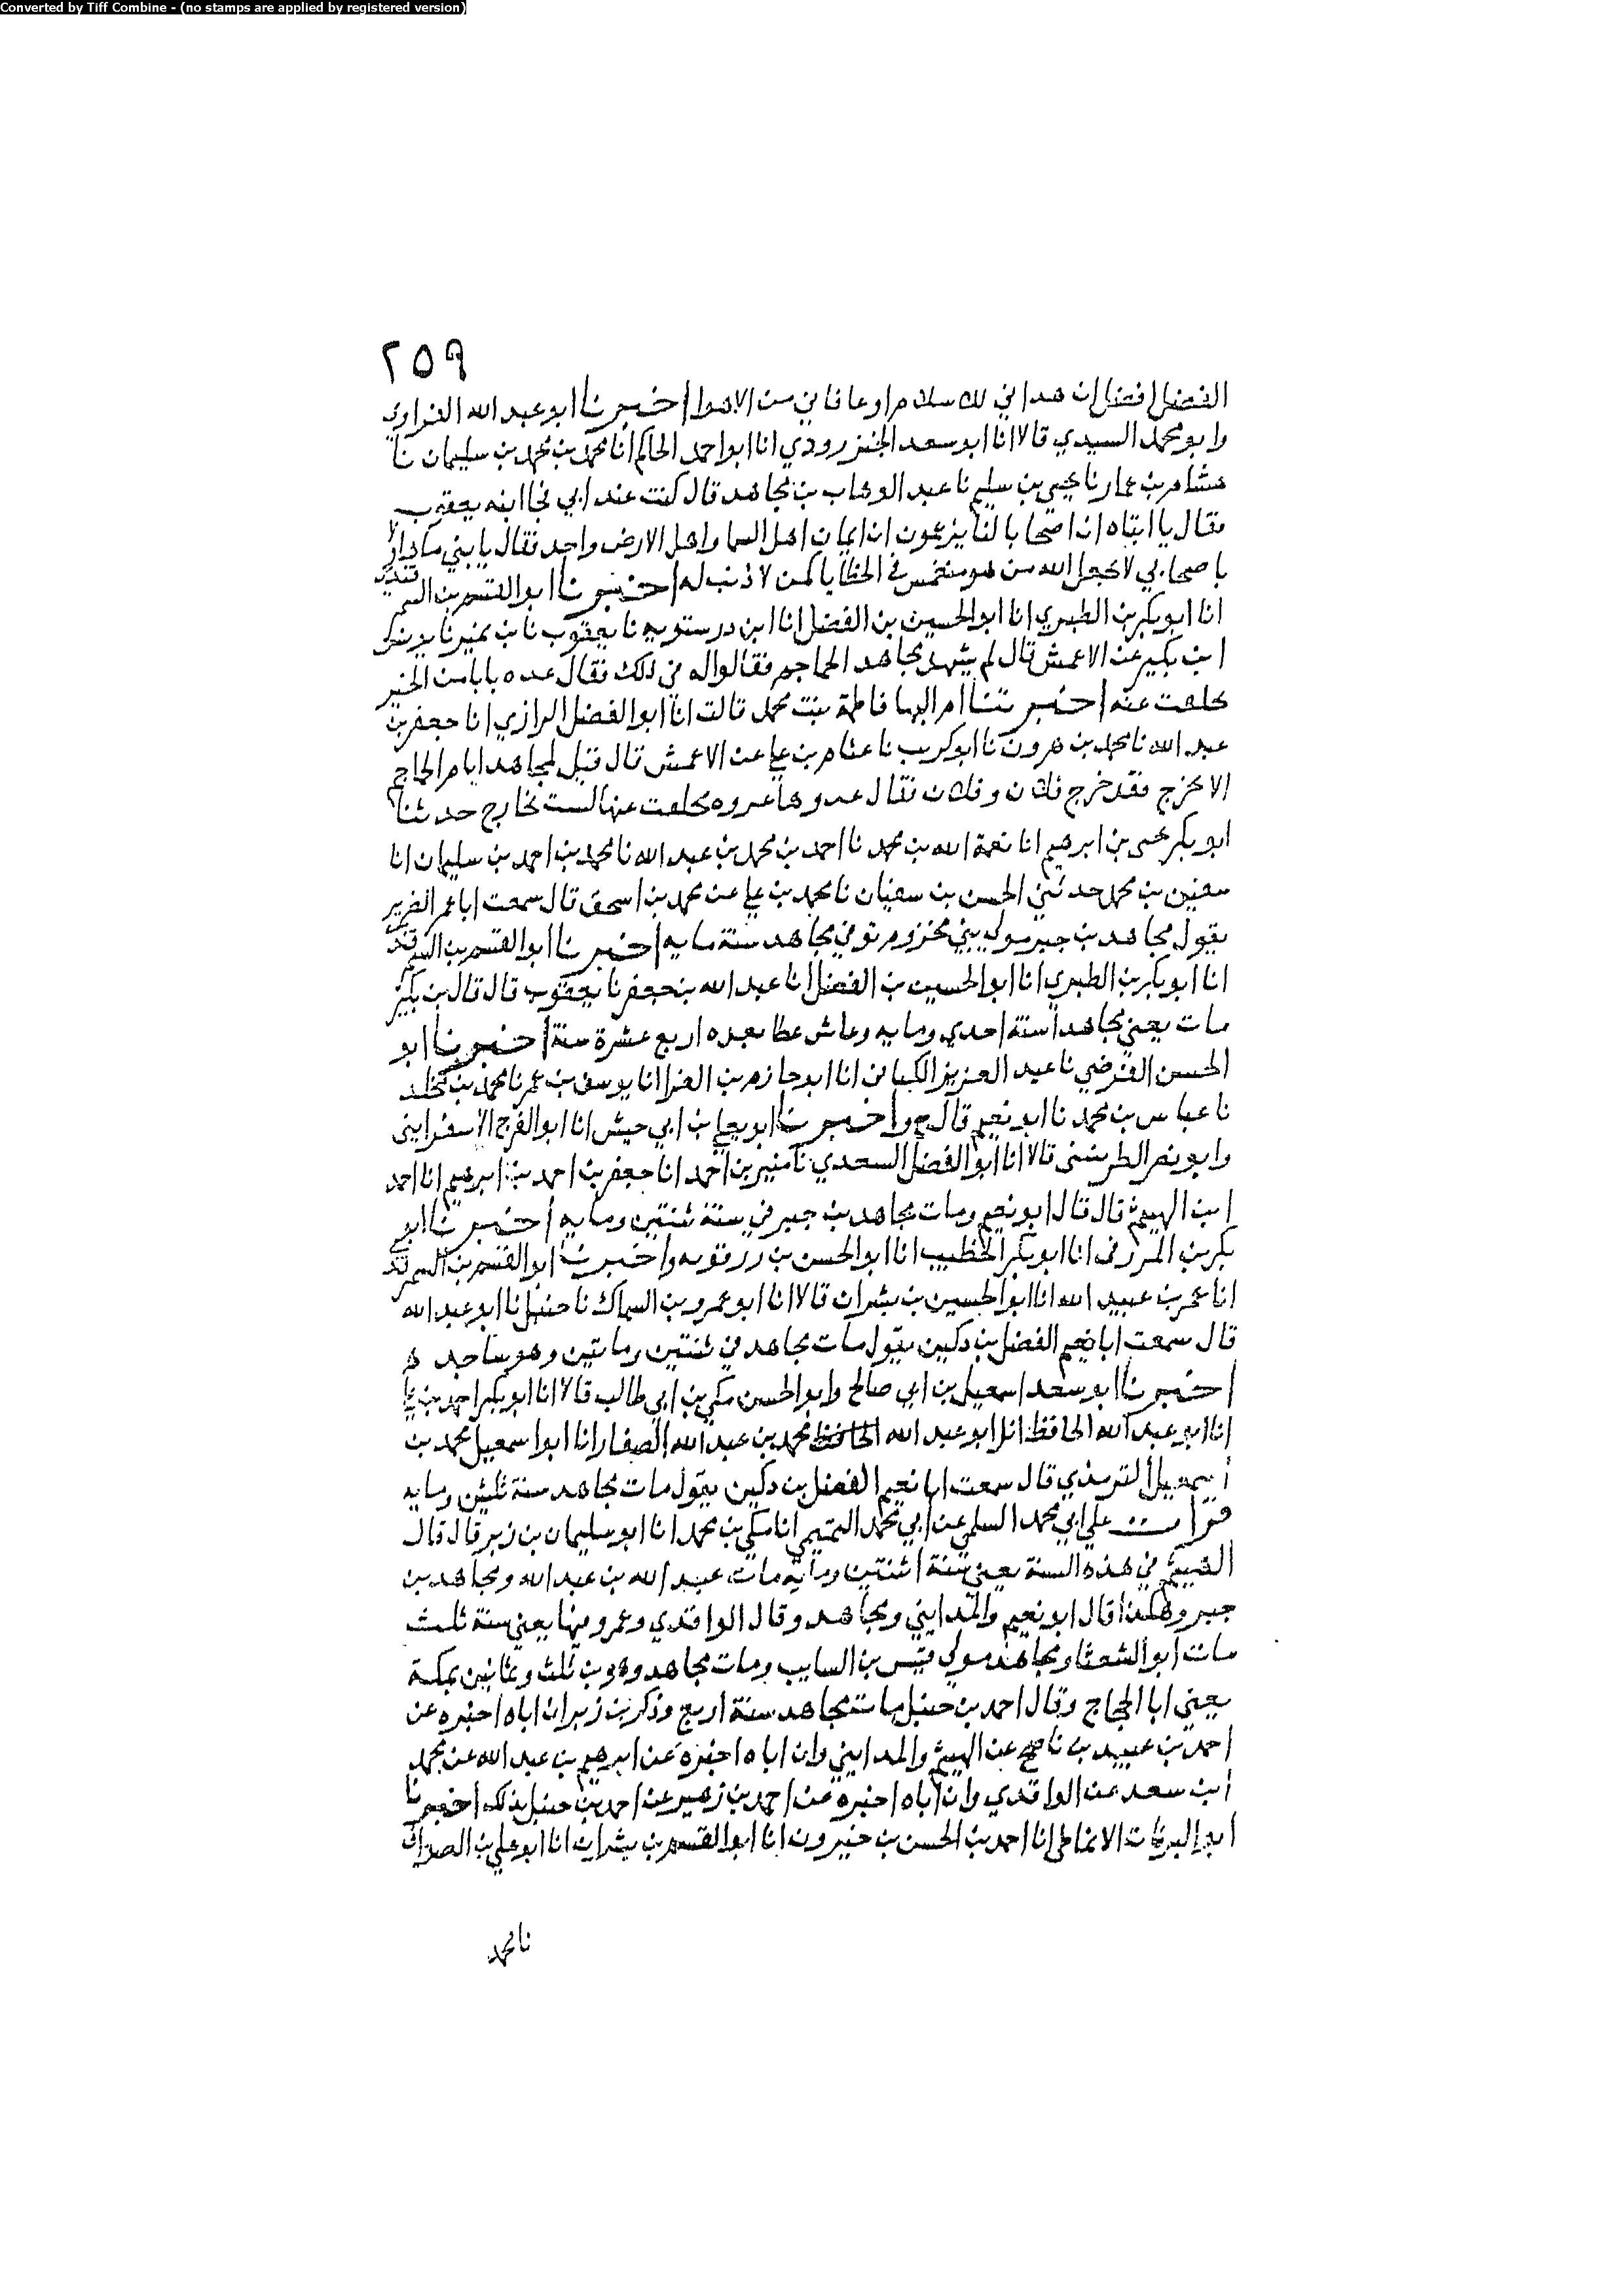 Converted by Tiff Combine - (no stamps are applied by registered version)
٢٥٩
الفضل افضل ان هداني للاسلام او عافاني من الاهوا اخبرنا ابو عبد الله الفراوي
وابو محمد السيدي قالا انا ابو سعد الجنزرودي انا ابو احمد الحاكم انا محمد بن محمد بن سليمان نا
هشام بن عمار نا يحيى بن سليم نا عبد الوهاب بن مجاهد قال كنت عند ابي فجا ابنه يعقوب
فقال يا ابتاه ان اصحابا لنا يزعمون ان ايمان اهل السما واهل الارض واحد فقال يا بني ما هاولا
باصحابي لا يجعل الله من هو منغمس في الخطايا كمن لا ذنب له اخبرنا ابو القسم بن السمرقندي
انا ابو بكر بن الطبري انا ابو الحسين بن الفضل انا ابن درستويه نا يعقوب نا بن نمير نا يونس
ابن بكير عن الاعمش قال لم يشهد مجاهد الجماجم فقالوا له في ذلك فقال عده بابا من الخير
تخلفت عنه اخبرتنا ام البها فاطمة بنت محمد قالت انا ابو الفضل الرازي انا جعفر بن
عبد الله نا محمد بن هرون نا ابو كريب نا عثام بن علي عن الاعمش قال قيل لمجاهد ايام الجماجم
الا تخرج فقد خرج فلان وفلان فقال عدوها عروه تخلفت عنها لست بخارج حدثنا
ابو بكر يحيى بن ابرهيم انا نعمة الله بن محمد نا احمد بن محمد بن عبد الله نا محمد بن احمد بن سليمان انا
سفين بن محمد حدثني الحسن بن سفيان نا محمد بن علي عن محمد بن اسحق قال سمعت ابا عمر الضرير
يقول مجاهد بن جبر مولى بني مخزوم توفي مجاهد سنة مايه اخبرنا ابو القسم بن السمرقندي
انا ابو بكر بن الطبري انا ابو الحسين بن الفضل انا عبد الله بن جعفر نا يعقوب قال قال بن بكير
مات يعني مجاهدا سنة احدي ومايه وعاش عطا بعده اربع عشرة سنة اخبرنا ابو
الحسن الفرضي نا عبد العزيز الكتاني انا ابو حازم بن الفرا انا يوسف بن عمر نا محمد بن مخلد
نا عباس بن محمد نا ابو نعيم قال ح واخبرنا ابو يعلى بن ابي حبيش انا ابو الفرج الاسفرايني
وابو نصر الطريثيثي قالا انا ابو الفضل السعدي نا منير بن احمد انا جعفر بن احمد بن ابرهيم انا احمد
ابن الهيثم قال قال ابو نعيم ومات مجاهد بن جبر في سنة ثنتين ومايه اخبرنا ابو
بكر بن المزرفي انا ابو بكر الخطيب انا ابو الحسن بن رزقويه واخبرنا ابو القسم بن السمرقندي
انا عمر بن عبيد الله انا ابو الحسين بن بشران قالا انا ابو عمرو بن السماك نا حنبل نا ابو عبد الله
قال سمعت ابا نعيم الفضل بن دكين يقول مات مجاهد في ثنتين ومائتين وهو ساجد
اخبرنا ابو سعد اسمعيل بن ابي صالح وابو الحسن مكي بن ابي طالب قالا انا ابو بكر احمد بن علي
انا ابو عبد الله الحافظ انا ابو عبد الله محمد بن عبد الله الصفار انا ابو اسمعيل محمد بن
اسمعيل الترمذي قال سمعت ابا نعيم الفضل بن دكين يقول مات مجاهد سنة ثلثين ومايه
قرات على ابي محمد السلمي عن ابي محمد التميمي انا مكي بن محمد انا ابو سليمان بن زبر قال قال
الهيثم في هذه السنة يعني سنة اثنتين ومأية مات عبيد الله بن عبد الله ومجاهد بن
جبر وهكذا قال ابو نعيم والمدايني ومجاهد وقال الواقدي وعمرو فيها يعني سنة ثلث
مات ابو الشعثا ومجاهد مولى قيس بن السايب ومات مجاهد وهو بن ثلث وثمانين بمكة
يعني ابا الحجاج وقال احمد بن حنبل مات مجاهد سنة اربع وذكر بن زبر ان اباه اخبره عن
احمد بن عبيد بن ناصح عن الهيثم والمدايني وان اباه اخبره عن ابرهيم بن عبد الله عن محمد
ابن سعد عن الواقدي وان اباه اخبره عن احمد بن زهير عن احمد بن حنبل بذلك اخبرنا
ابو البركات الانماطي انا احمد بن الحسن بن خيرون انا ابو القسم بن بشران انا ابو علي بن الصواف
نا محمد